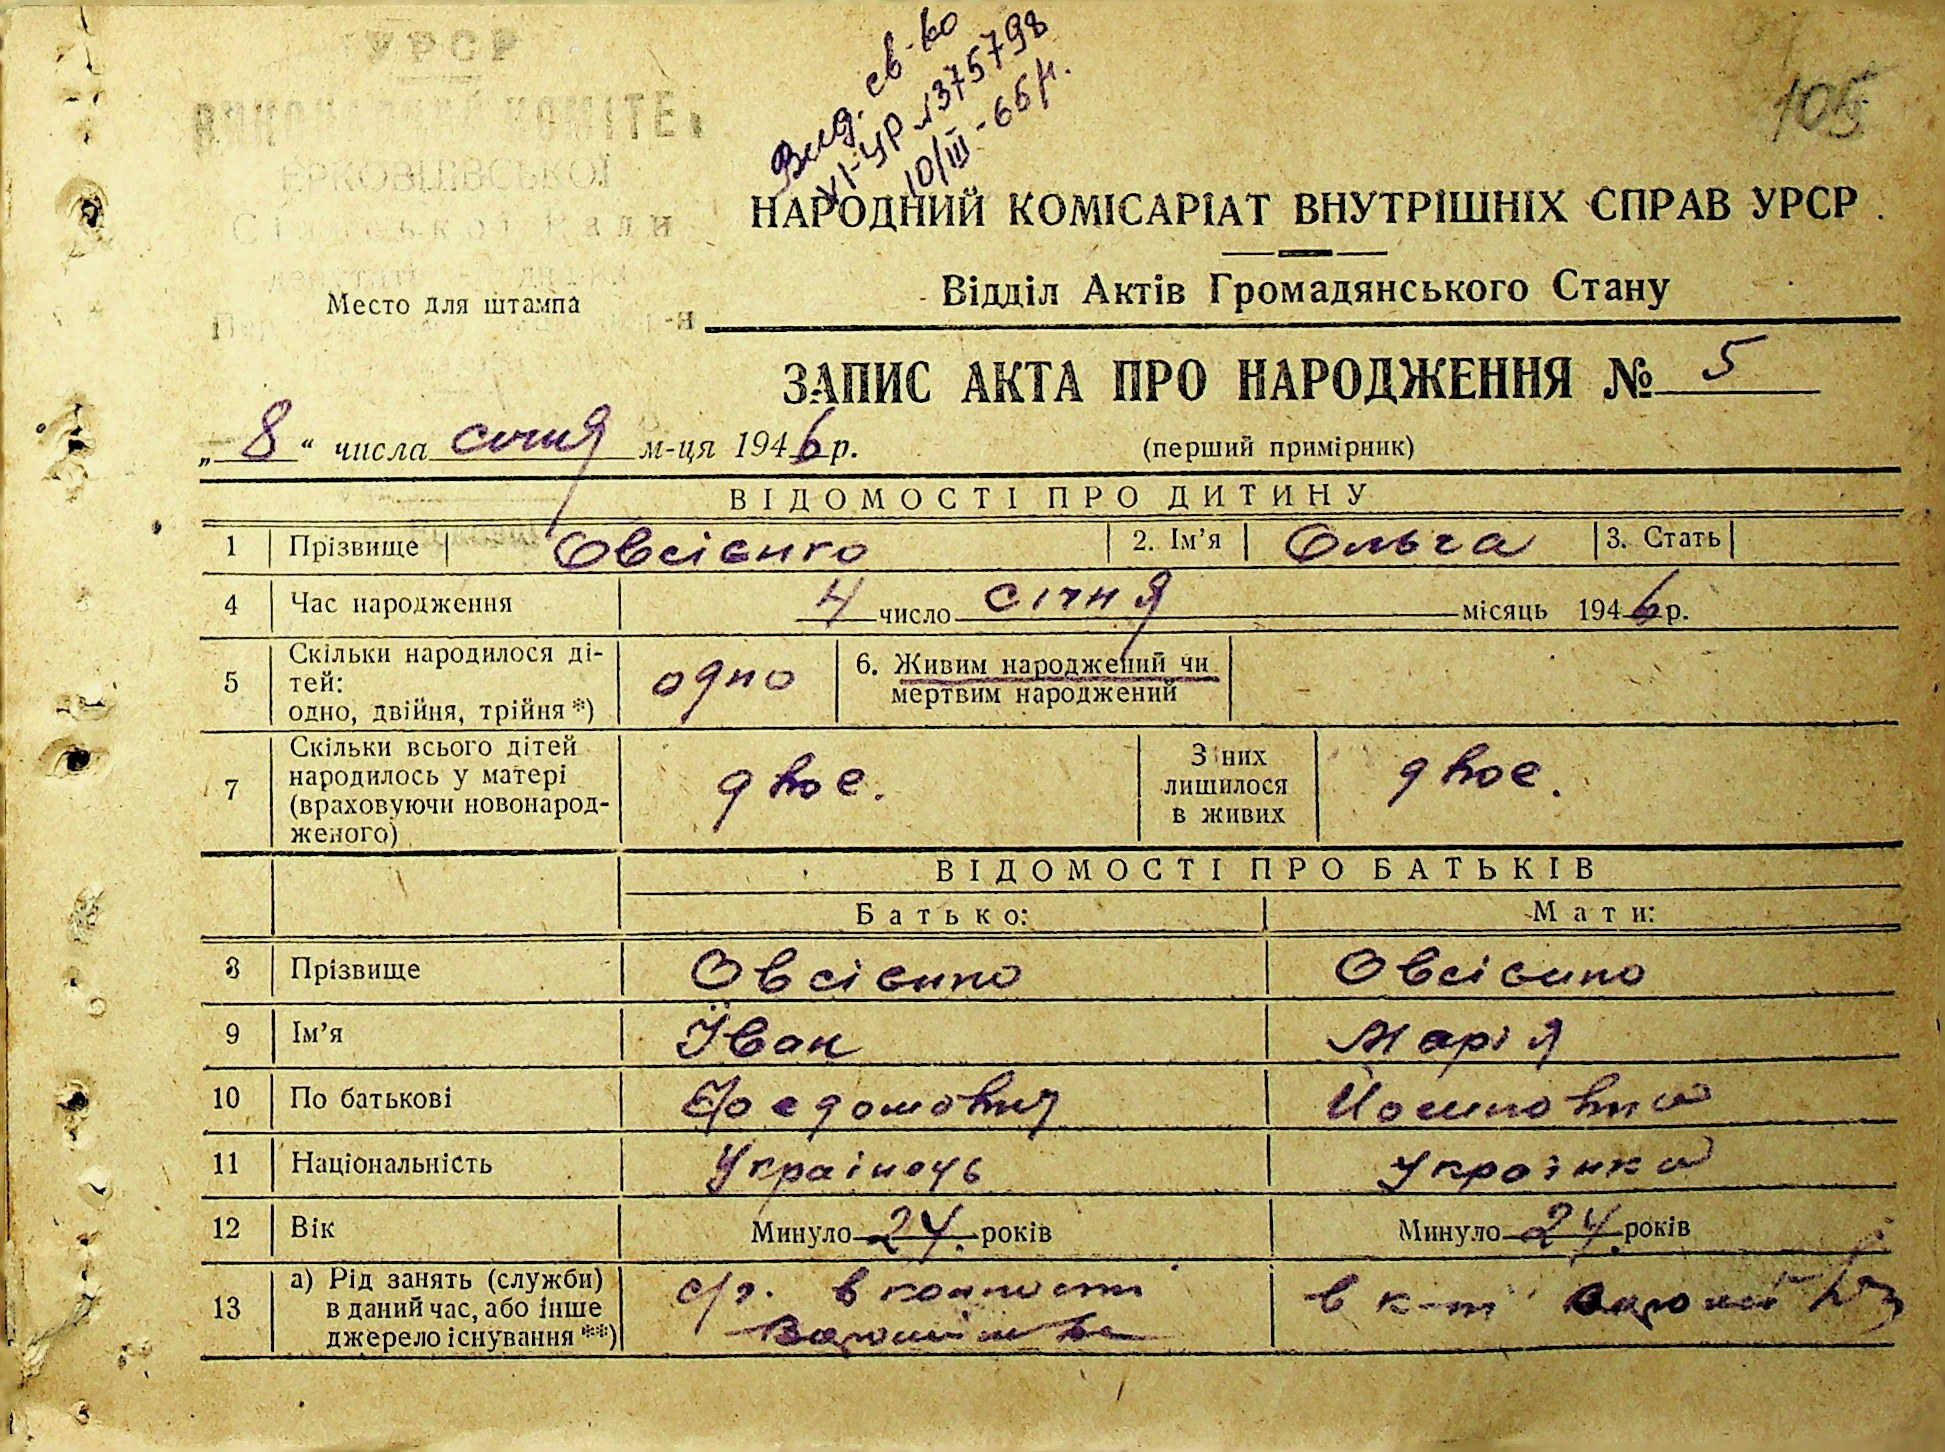 УРСР
ВИКОНАВЧИЙ КОМІТЕТ
ЄРКОВЦІВСЬКОЇ
Сільської Ради
Вид. св-во
VI-УР №375798
10/III-66р.
105
НАРОДНИЙ КОМІСАРІАТ ВНУТРІШНІХ СПРАВ УРСР
Відділ Актів Громадянського Стану
Место для штампа
ЗАПИС АКТА ПРО НАРОДЖЕННЯ № 5
„ 8 “ числа січня м-ця 1946 р.
(перший примірник)
ВІДОМОСТІ ПРО ДИТИНУ
1 Прізвище Овсієнко 2. Ім’я Ольга 3. Стать
4 Час народження 4 число січня місяць 1946 р.
5 Скільки народилося ді-
тей:
одно, двійня, трійня *) одно
6. Живим народжений чи
мертвим народжений
7 Скільки всього дітей
народилось у матері
(враховуючи новонарод-
женого) двое.
З них
лишилося
в живих двое.
ВІДОМОСТІ ПРО БАТЬКІВ
Батько: Мати:
8 Прізвище Овсієнко Овсієнко
9 Ім’я Іван Марія
10 По батькові Федомович Йосиповна
11 Національність Українець Українка
12 Вік Минуло 24. років Минуло 24. років
13 а) Рід занять (служби)
в даний час, або інше
джерело існування **)
с/г. в колгоспі
в к-пі